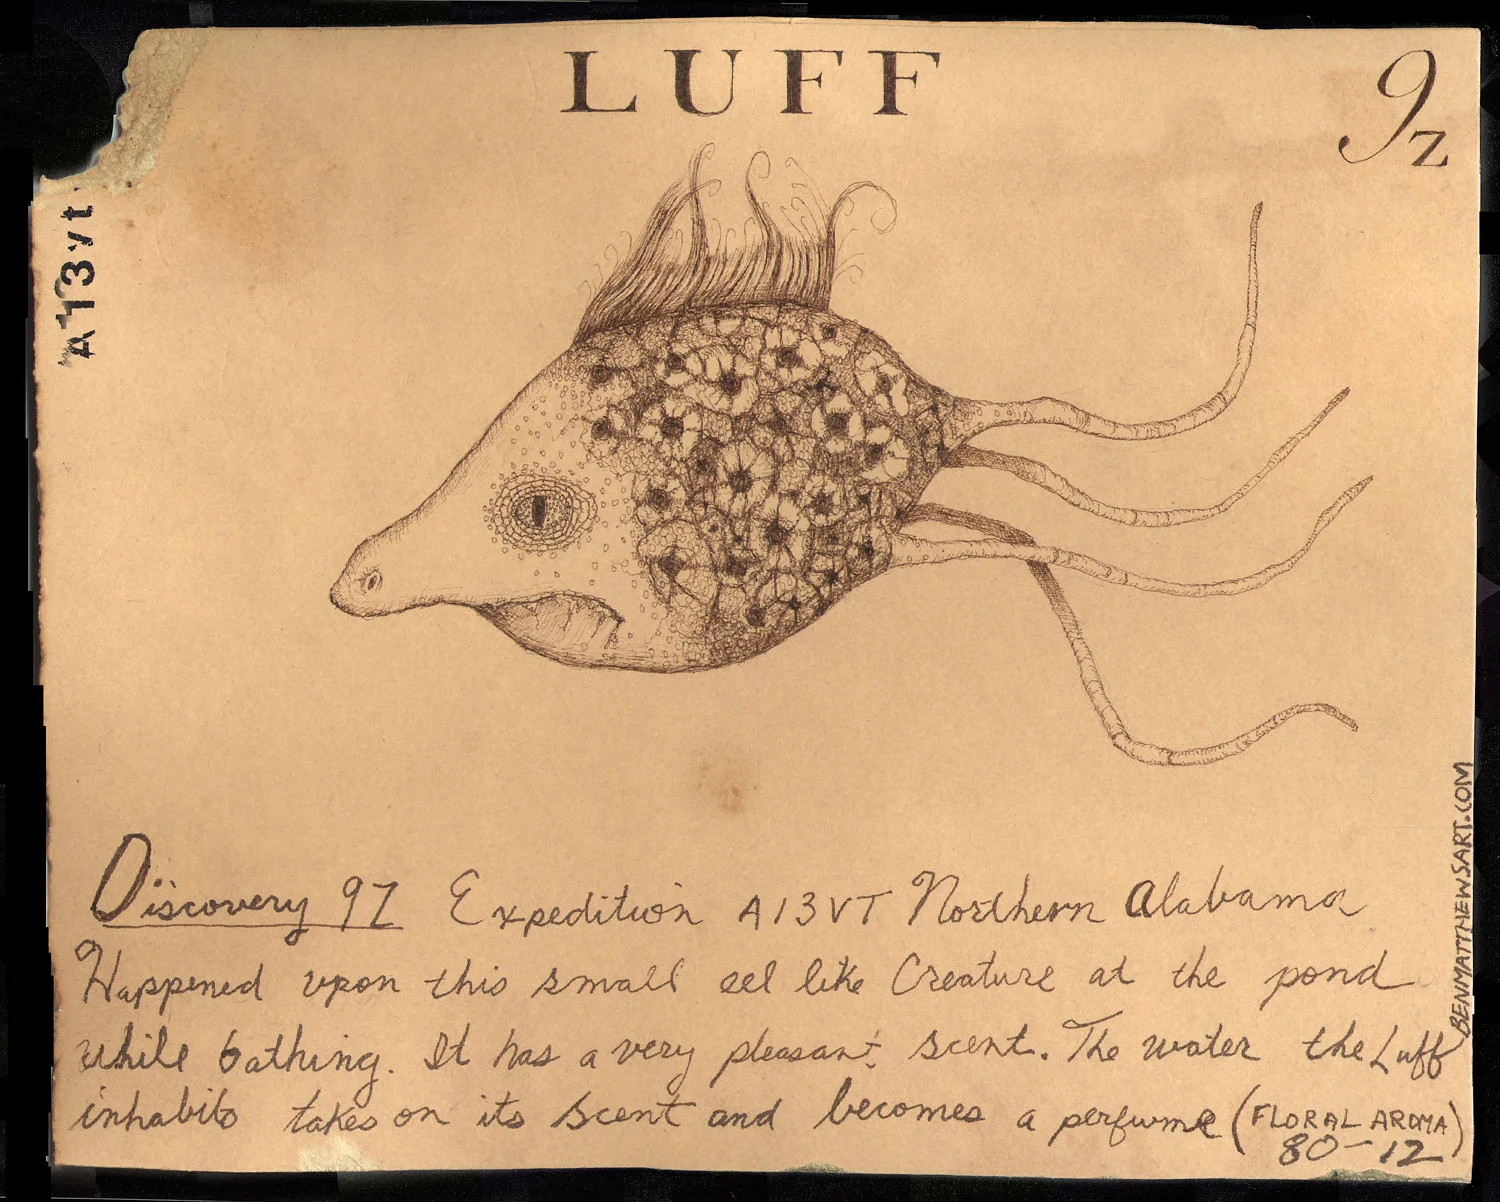 LUFF
9z
A13vt
Discovery 9Z Expedition A13VT Northern Alabama
Happened upon this small eel like Creature at the pond
while bathing. It has a very pleasant scent. The water the Luff
inhabits takes on its scent and becomes a perfume (FLORAL AROMA)
80-12
BENMATTHEWSART.COM